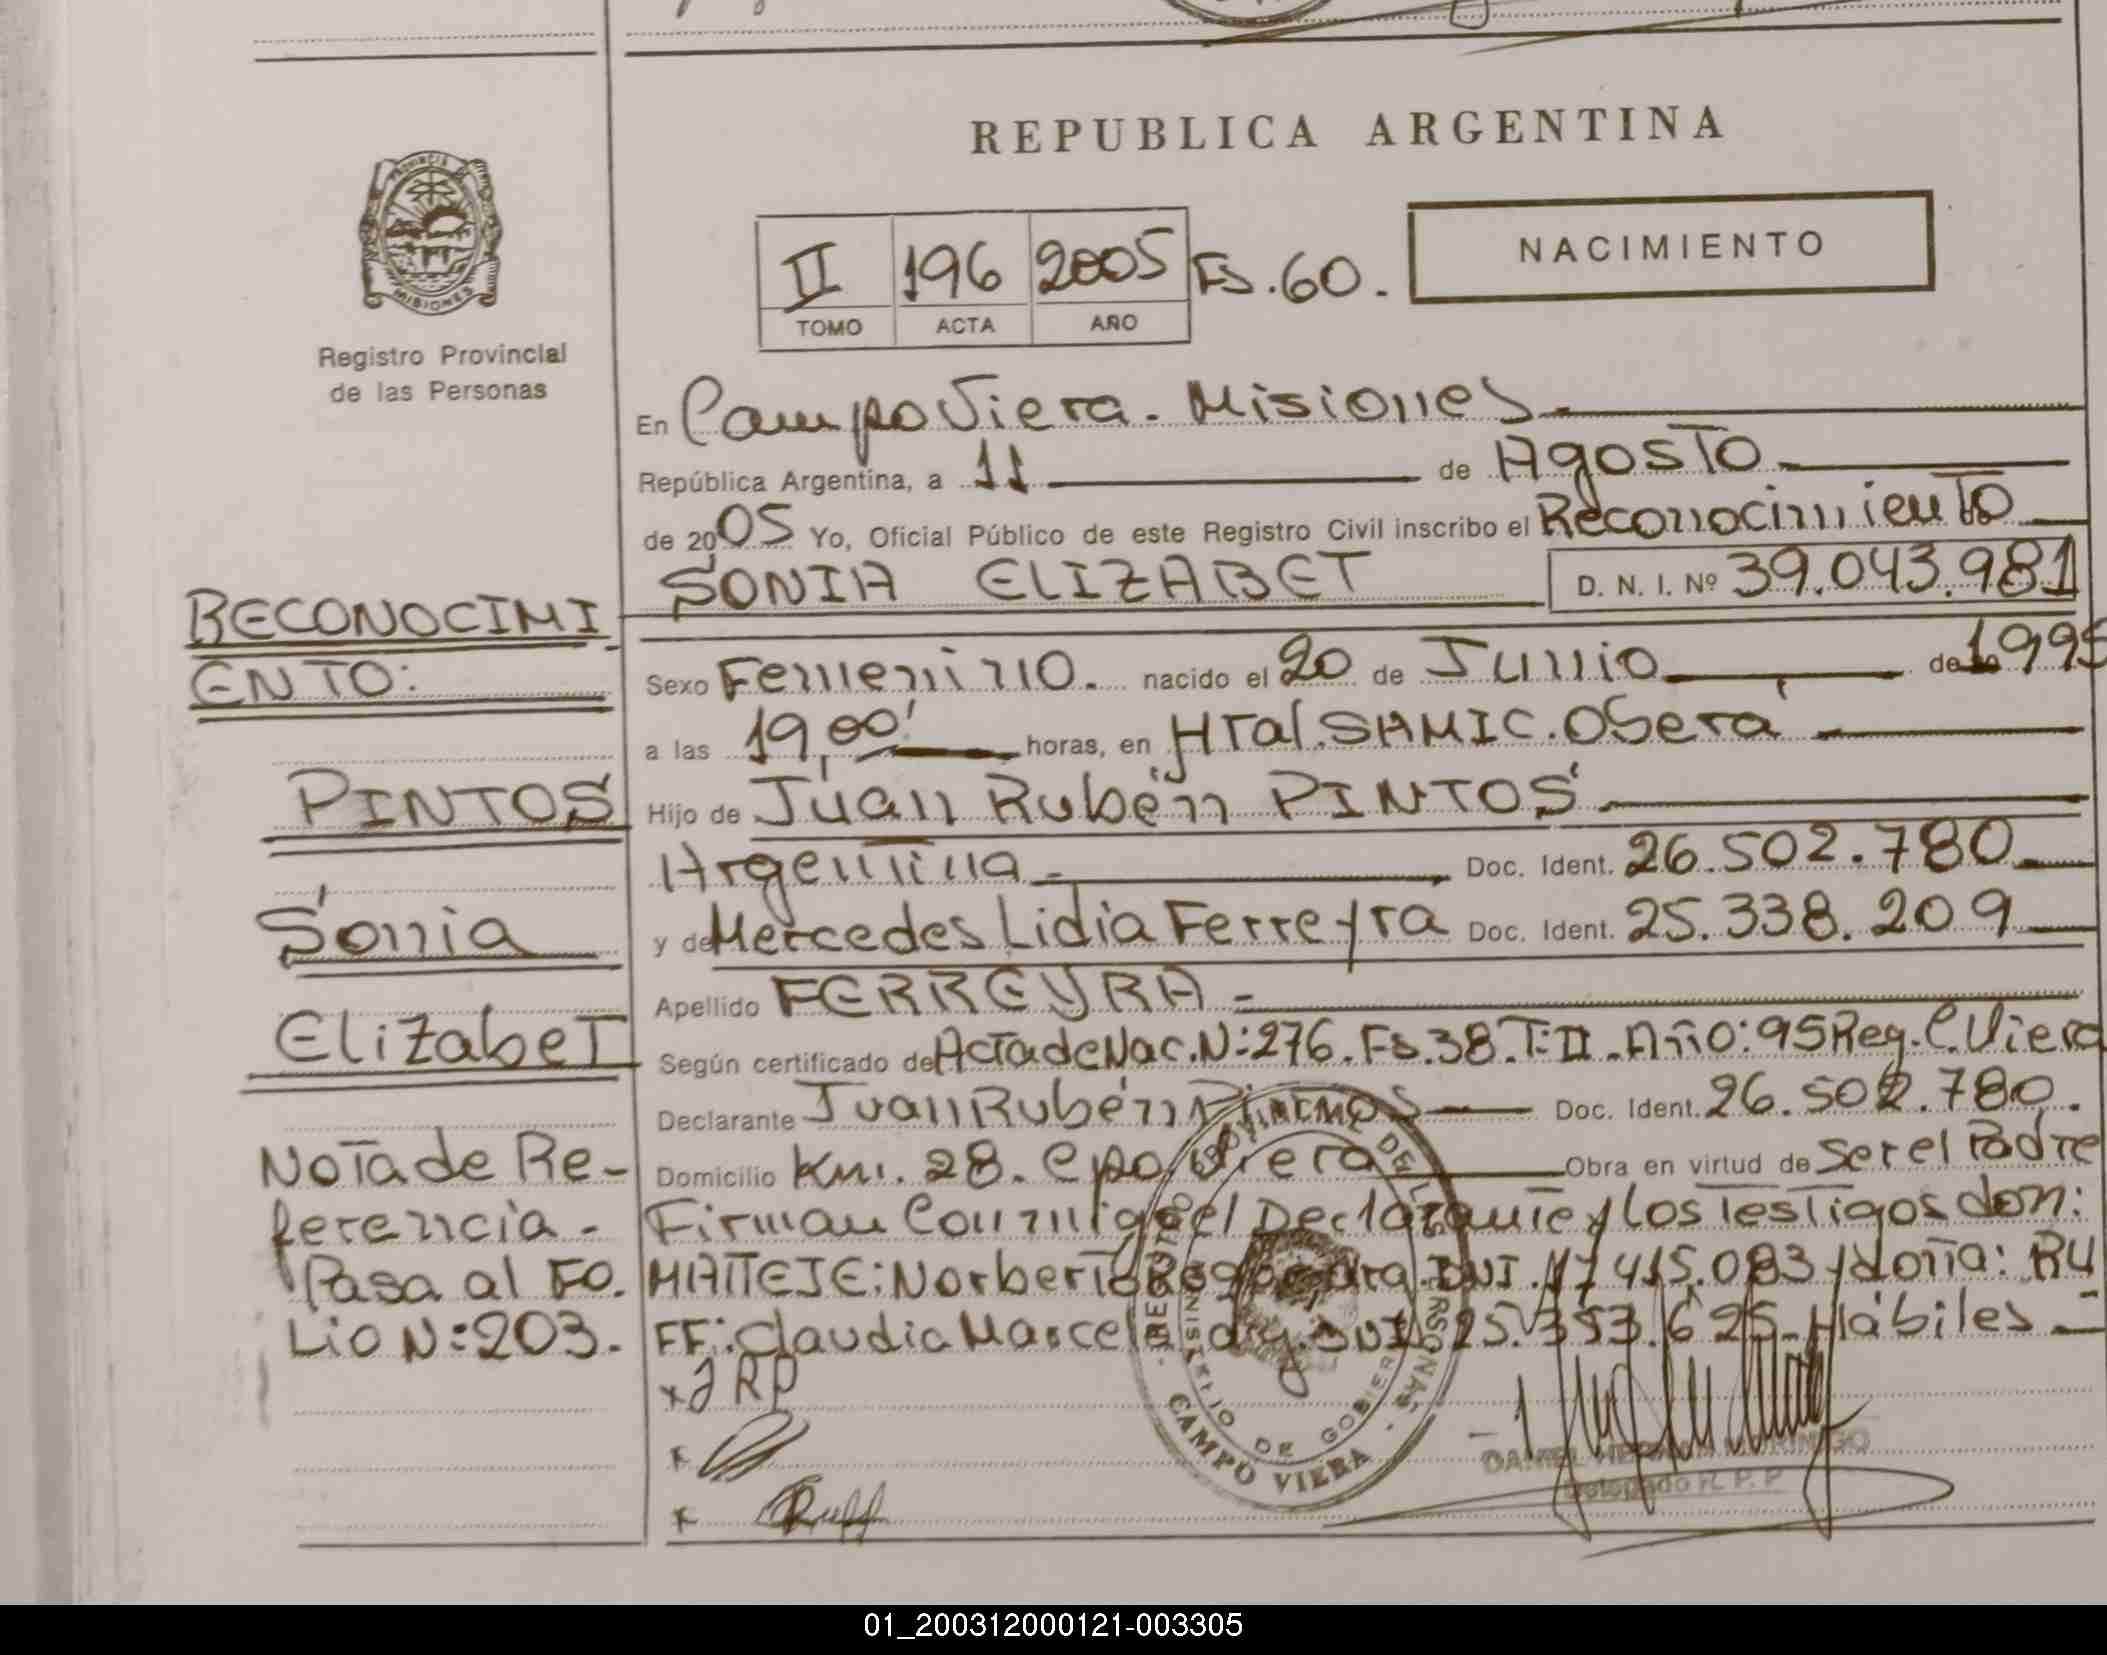 REPUBLICA ARGENTINA
PROVINCIA DE MISIONES
Registro Provincial
de las Personas
II 196 2005 Fs.60.
TOMO ACTA AÑO
NACIMIENTO
En Campo Viera - Misiones
República Argentina, a 11 de Agosto
de 2005 Yo, Oficial Público de este Registro Civil inscribo el Reconocimiento
SONIA ELIZABET D. N. I. Nº 39.043.981
Sexo Femenino. nacido el 20 de Junio de 1995
a las 19,00' horas, en Htal. SAMIC. Oberá
Hijo de Juan Rubén PINTOS
Argentina Doc. Ident. 26.502.780
y de Mercedes Lidia Ferreyra Doc. Ident. 25.338.209
Apellido FERREYRA -
Según certificado de Acta de Nac. N:276. Fs.38. T:II. Año:95 Reg. C. Viera
Declarante Juan Rubén PINTOS Doc. Ident. 26.502.780.
Domicilio Km. 28. Cpo Viera Obra en virtud de Ser el Padre
Firman Conmigo el Declarante y los Testigos don:
MATTEJE: Norberto DNI. 17.415.083 y doña: RU
FF: Claudia Marcela DNI 25.353.625 - Hábiles
x J RP
x
x Ruff
RECONOCIMI
ENTO:
PINTOS
Sonia
Elizabet
Nota de Re-
ferencia -
Pasa al Fo.
Lio N:203.
REGISTRO PROVINCIAL DE LAS PERSONAS
MINISTERIO DE GOBIERNO
CAMPO VIERA
DANIEL
Delegado R. P. P
01_200312000121-003305